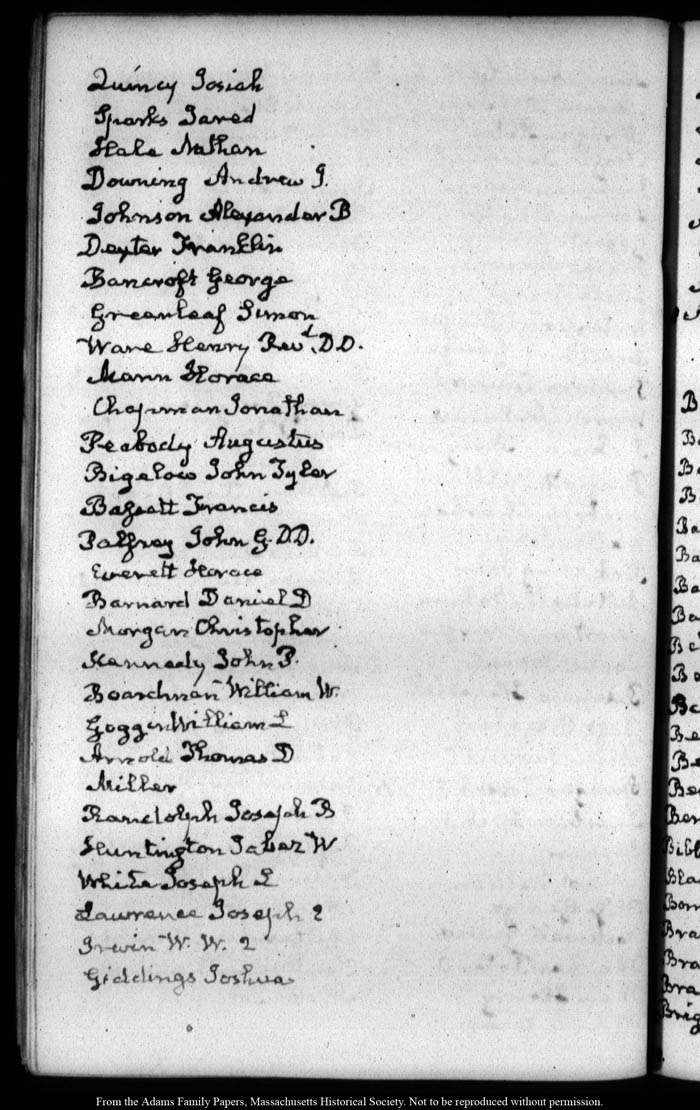 Quincy Josiah
Sparks Jared
Hale Nathan
Downing Andrew J.
Johnson Alexander B
Dexter Franklin
Bancroft George
Greenleaf Simon
Ware Henry Revd. D.D.
Mann Horace
Chapman Jonathan
Peabody Augustus
Bigelow John Tyler
Bassett Francis
Palfrey John G. D.D.
Everett Horace
Barnard Daniel D
Morgan Christopher
Kennedy John P.
Boardman William W.
Goggin William L
Arnold Thomas D
Miller
Randolph Joseph B
Huntington Jabez W.
White Joseph L
Lawrence Joseph 2
Irwin W. W. 2
Giddings Joshua
From the Adams Family Papers, Massachusetts Historical Society. Not to be reproduced without permission.